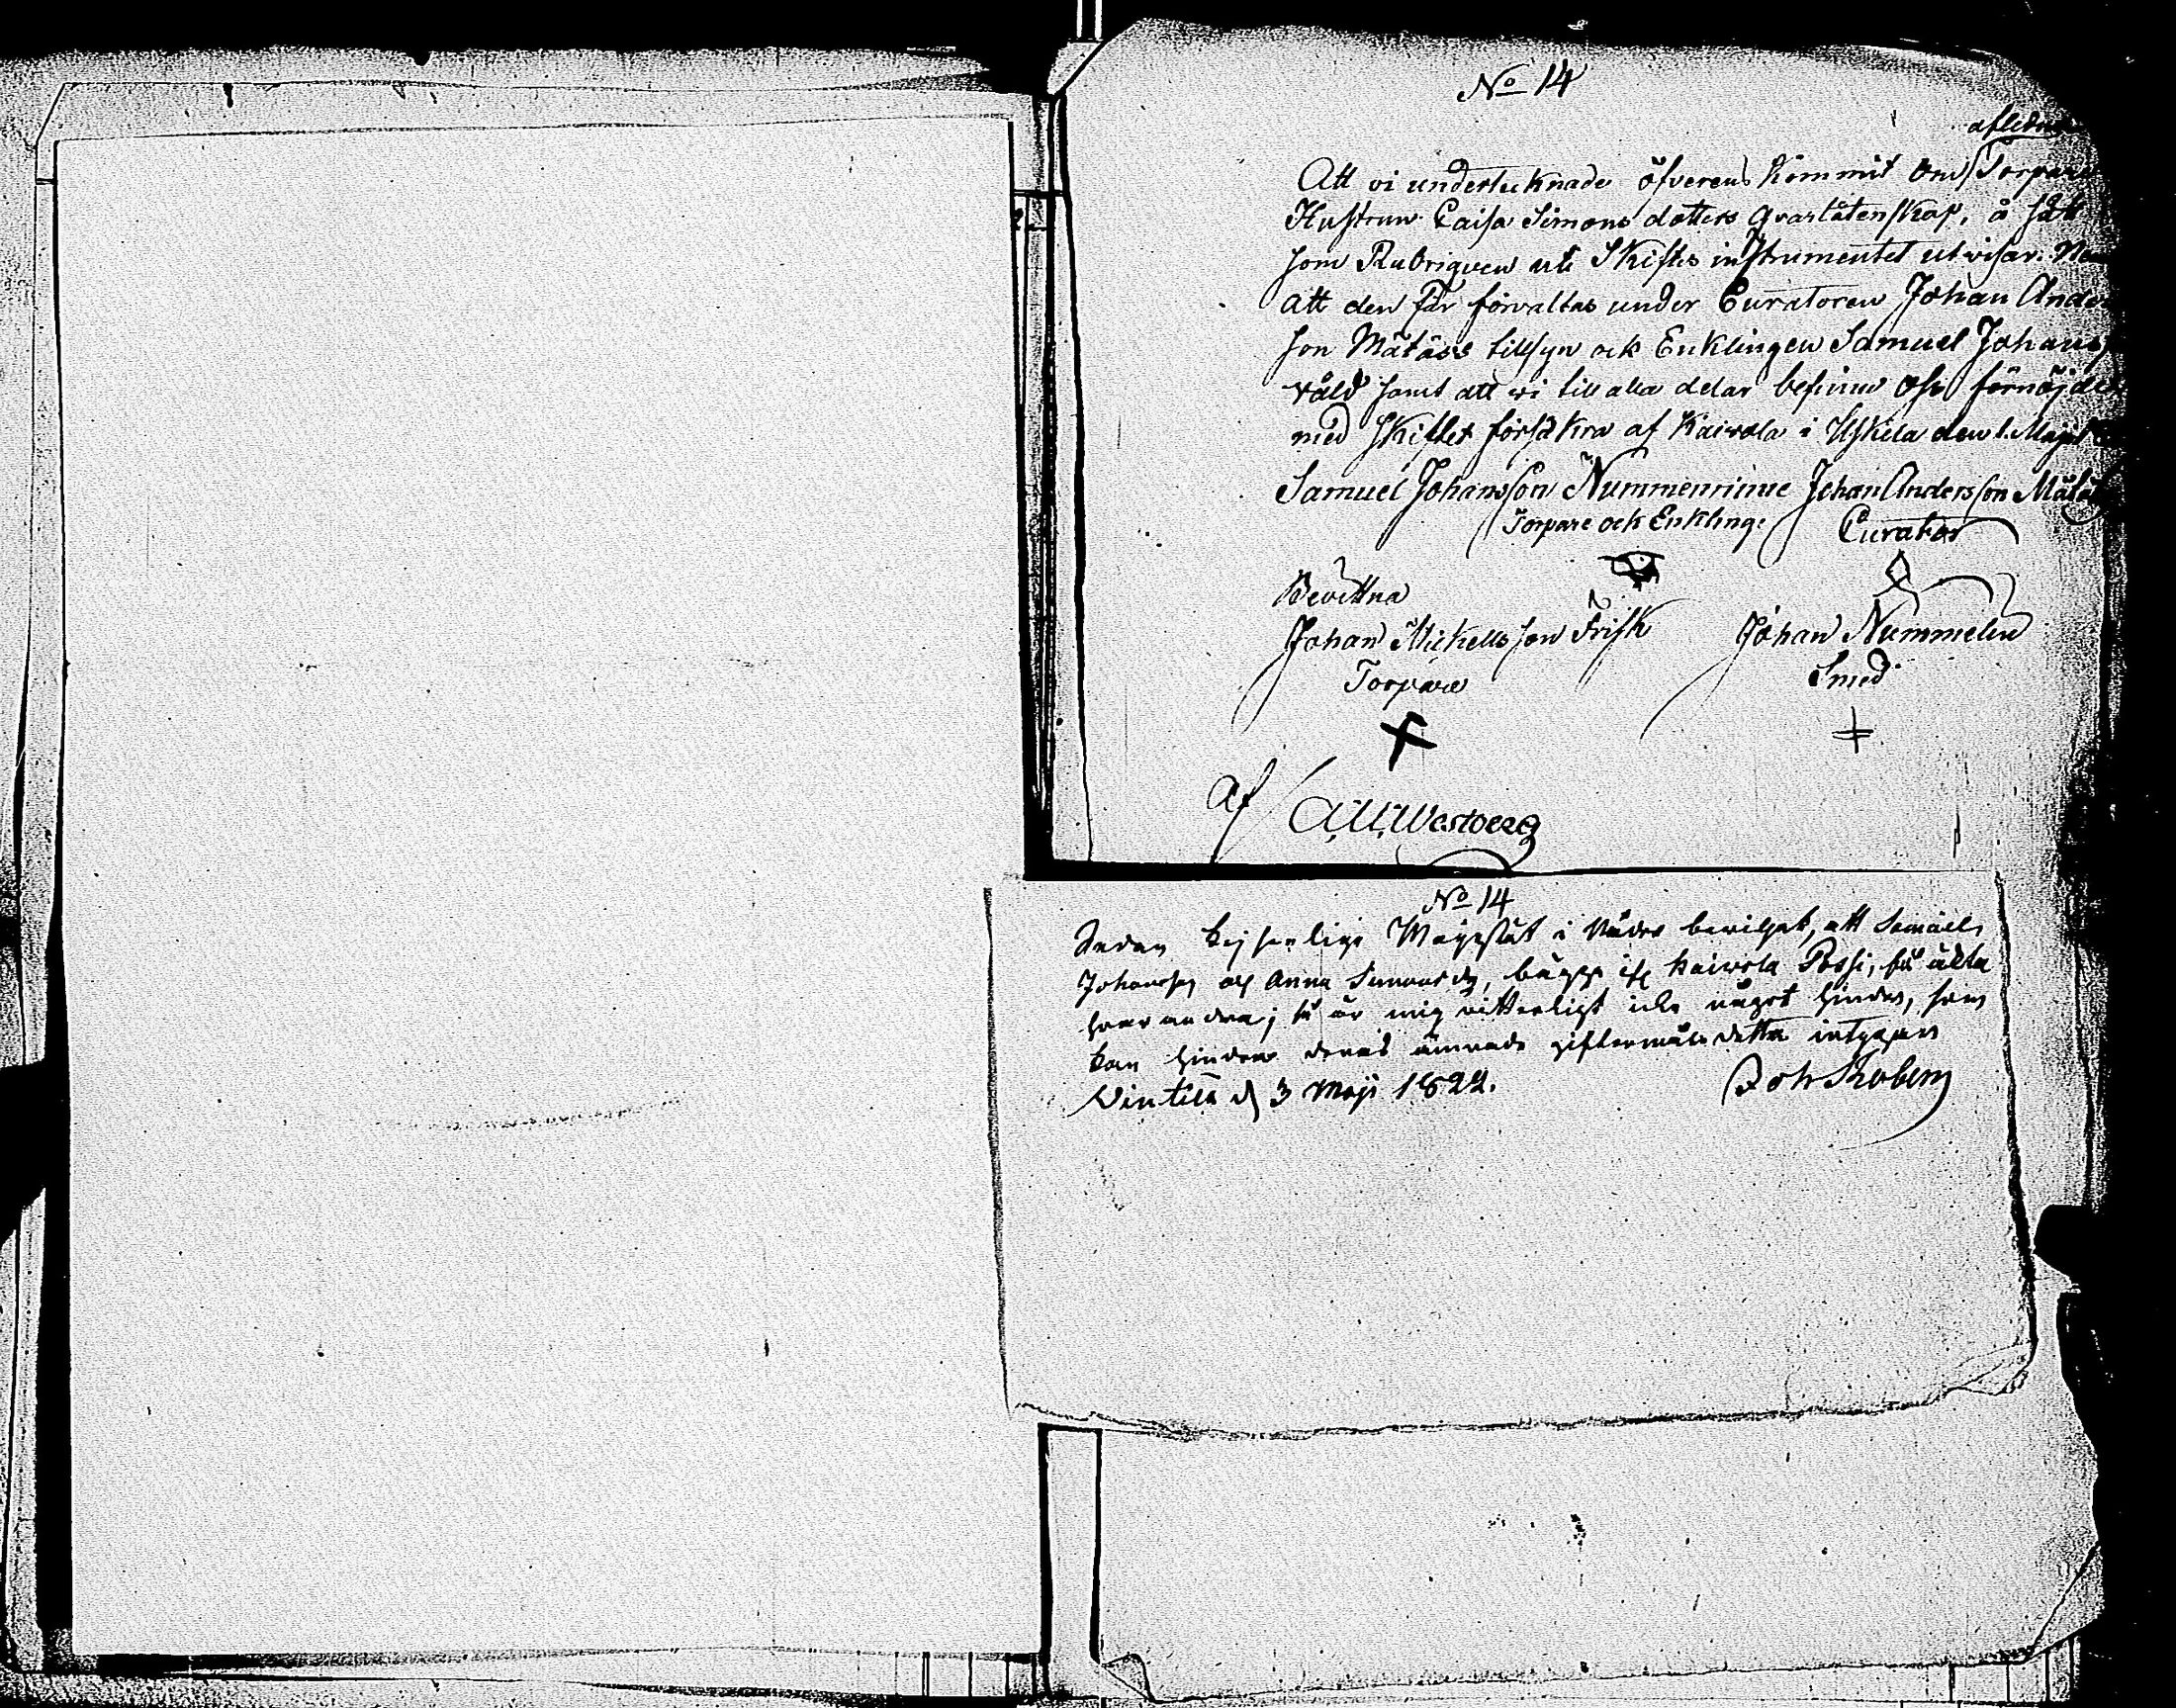 No 14
afledne
Att vi undertecknade öfverens kommit om Torpare
Hustrun Caisa Simons dotters qvarlåtenskap, å sätt
som Rubriquen uti Skiftes instrumentet utvisar.
att den får förvaltas under Curatoren Johan Anders
son Mätäss tillsyn ock Enklingen Samuel Johans
våld samt att vi till alla delar befinna oss förnöjde
med skiftet försäkra af Kaivola i Uskela den 1. Maji
Samuel Johansson Nummenrinne Johan Andersson
Torpare ock Enkling. Curator
Bevittna
Johan Mickellsson Frisk Johan Nummelin
Torpare Smed
af
No 14
Sedan Kejserlige Majestät i Nåder beviljat, att Samuel
Johansson och Anna Simonsdr, bägge ifr Kaivola Possi, få äkta
hvarandra; så är mig vitterligt icke något hinder, som
kan hindra deras ämnade giftermåls detta intygar
d 3 Maji 1822.